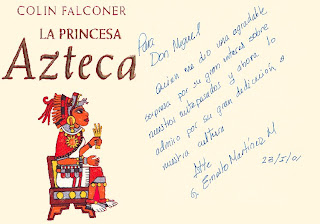 COLIN FALCONER
LA PRINCESA
Azteca
Para
Don Miguel
Quien me dio una agradable
sorpresa por su gran interes sobre
nuestros antepasados y ahora lo
admiro por su gran dedicación a
nuestra cultura
Atte
Ernesto Martínez M
23/I/01